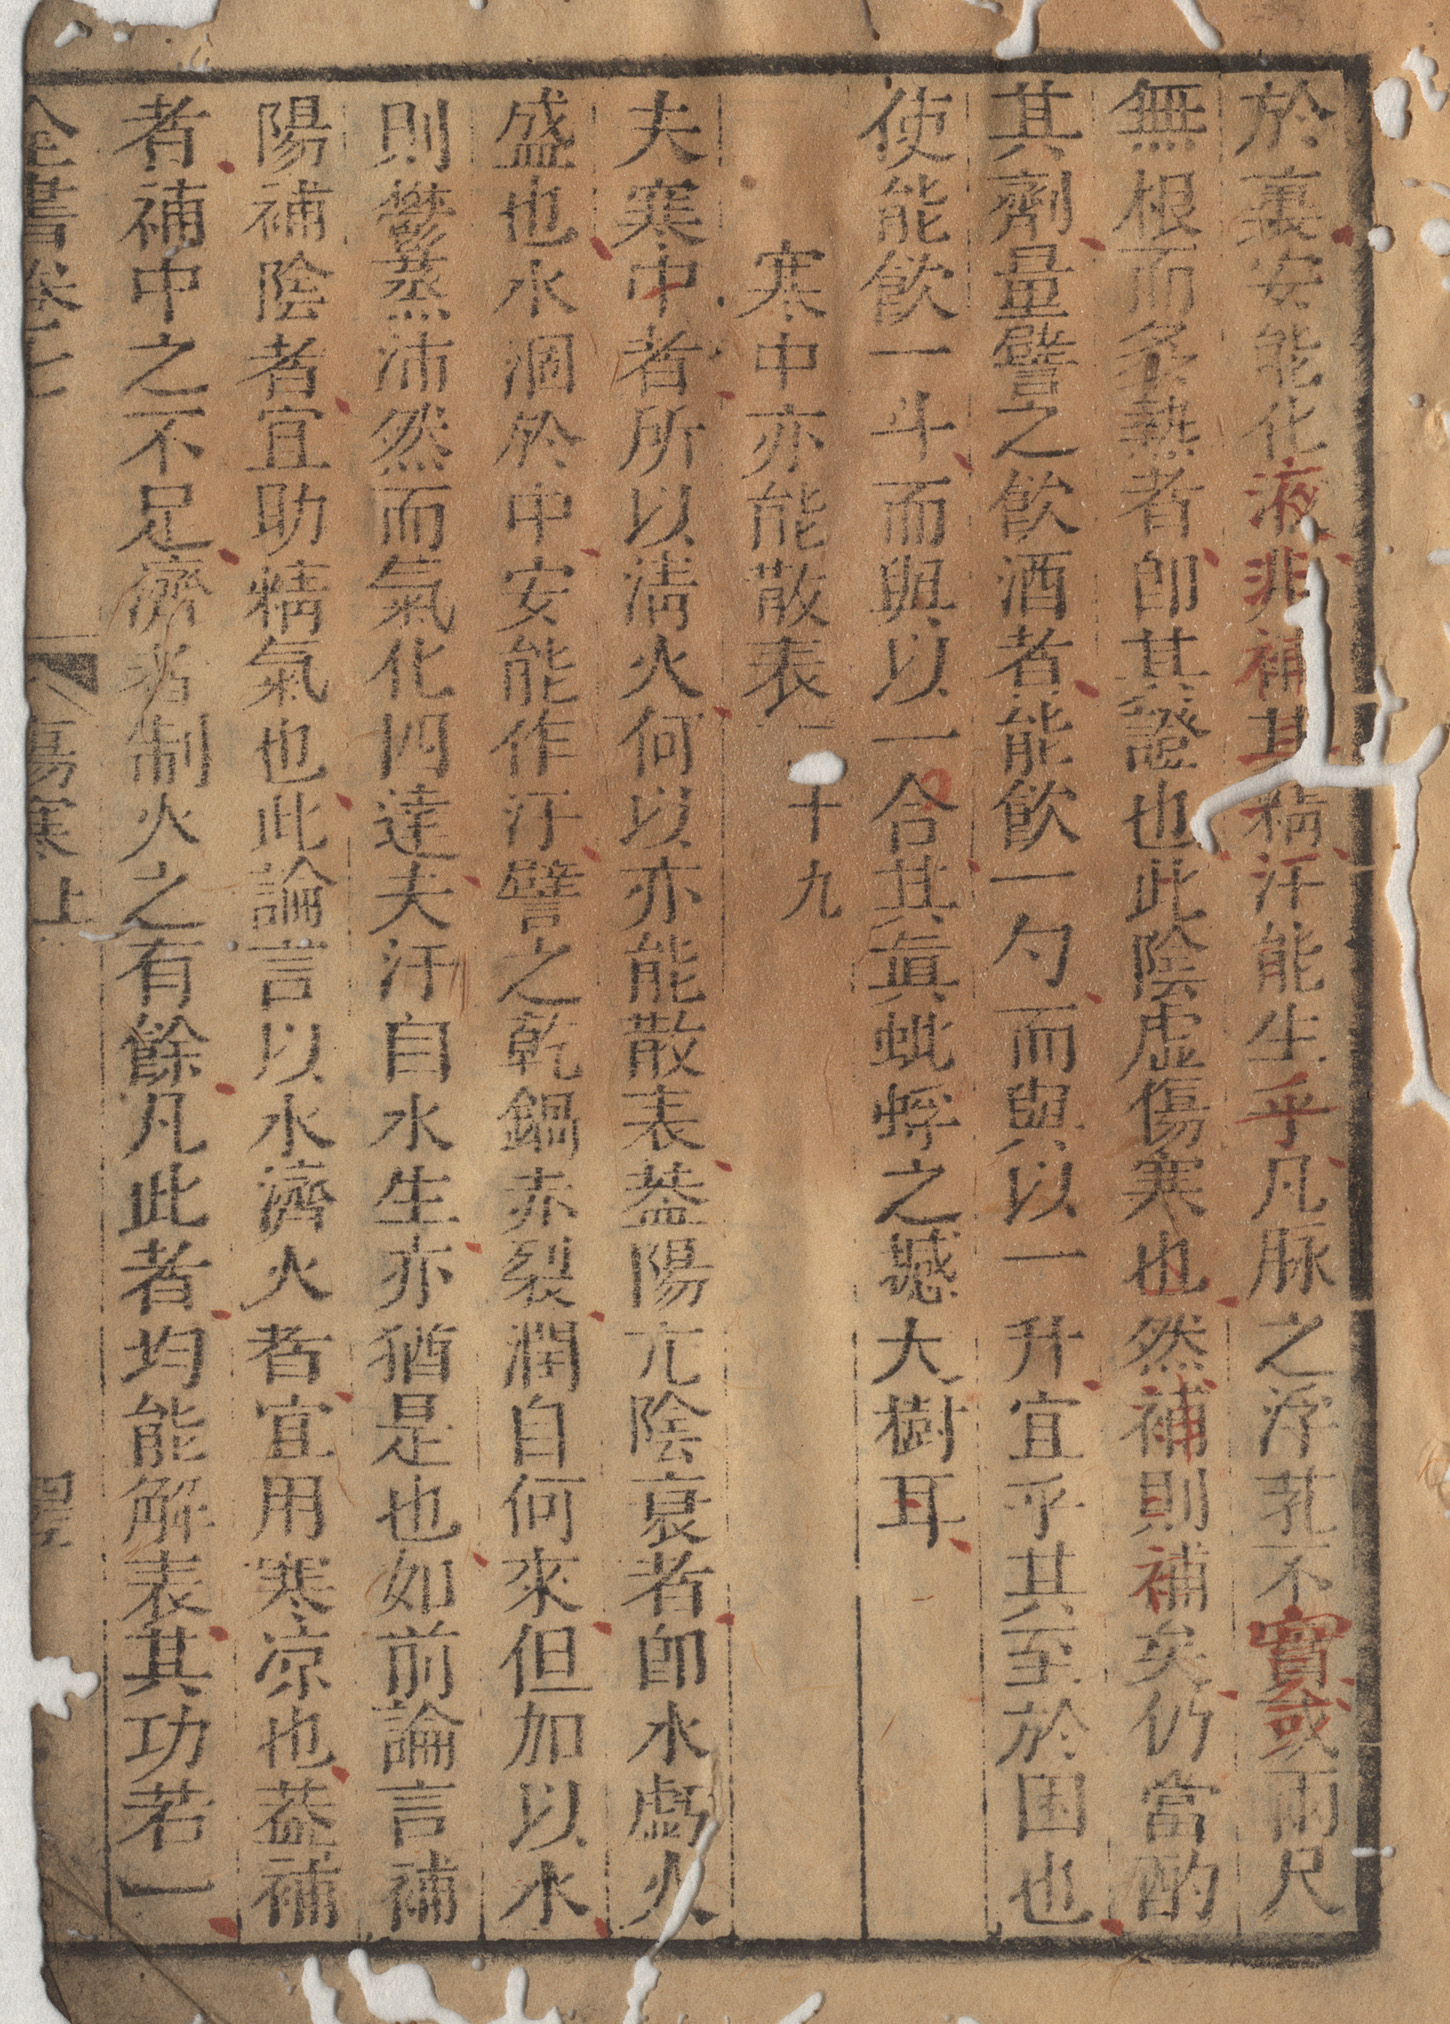 於裏安能化液非補其精汗能生乎凡脉之浮芤不實或兩尺
無根而炙熱者即其證也此陰虚傷寒也然補則補矣仍當酌
其劑量譬之飲酒者能飲一勺而與以一升宜乎其至於困也
使能飲一斗而與以一合其眞蚍蜉之撼大樹耳
寒中亦能散表 十九
夫寒中者所以淸火何以亦能散表葢陽亢陰衰者即水虧火
盛也水涸於中安能作汗譬之乾鍋赤裂潤自何來但加以水
則鬱蒸沛然而氣化四達夫汗自水生亦猶是也如前論言補
陽補陰者宜助精氣也此論言以水濟火者宜用寒凉也葢補
者補中之不足濟者制火之有餘凡此者均能解表其功若一
全書卷七 傷寒上